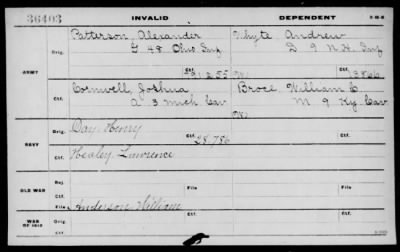 36403 INVALID DEPENDENT
Patterson, Alexander Whyte Andrew
Orig. G 48 Ohio Inf D 9 N.H. Inf
ARMY Ctf.
Cornwell, Joshua Broce, William C.
Ctf. A 3 Mich Cav M 9 Ky. Cav
Day, Henry
Orig. Ctf. 28,786 Ctf.
NAVY
Healey Lawrence
Ctf.
OLD WAR Rej. Ctf.
File File
Anderson William
WAR OF 1812 Orig. Ctf. Ctf.